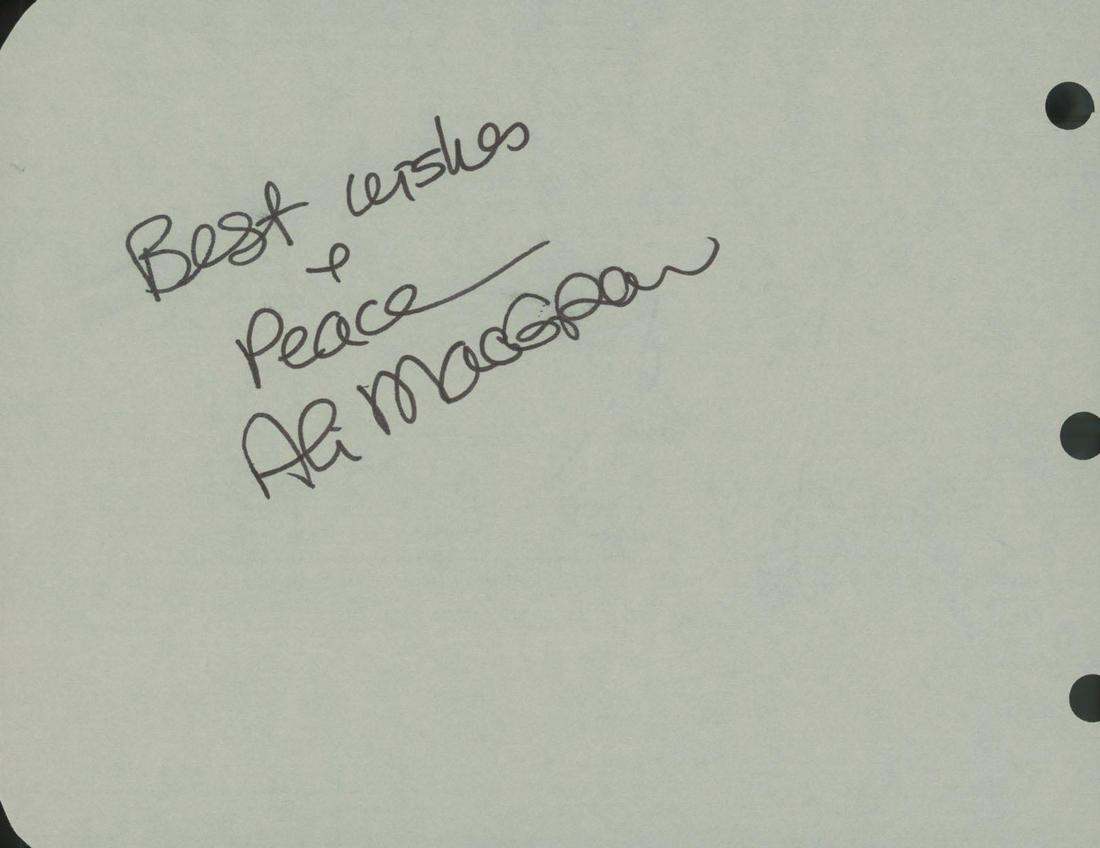 Best wishes
+
Peace
Ali MacGraw